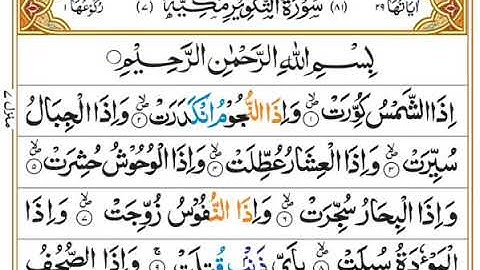 اٰيَاتُهَا ٢٩ (٨١) سُوْرَةُ التَّكْوِيْرِ مَكِّيَّةٌ (٧) رُكُوْعُهَا ١
بِسْمِ اللّٰهِ الرَّحْمٰنِ الرَّحِيْمِ
اِذَا الشَّمْسُ كُوِّرَتْ ۙ۝١ وَاِذَا النُّجُوْمُ انْكَدَرَتْ ۙ۝٢ وَاِذَا الْجِبَالُ
سُيِّرَتْ ۙ۝٣ وَاِذَا الْعِشَارُ عُطِّلَتْ ۙ۝٤ وَاِذَا الْوُحُوْشُ حُشِرَتْ ۙ۝٥
وَاِذَا الْبِحَارُ سُجِّرَتْ ۙ۝٦ وَاِذَا النُّفُوْسُ زُوِّجَتْ ۙ۝٧ وَاِذَا
الْمَوْءٗدَةُ سُىِٕلَتْ ۙ۝٨ بِاَىِّ ذَنْۢبٍ قُتِلَتْ ۚ۝٩ وَاِذَا الصُّحُفُ
منزل ٧